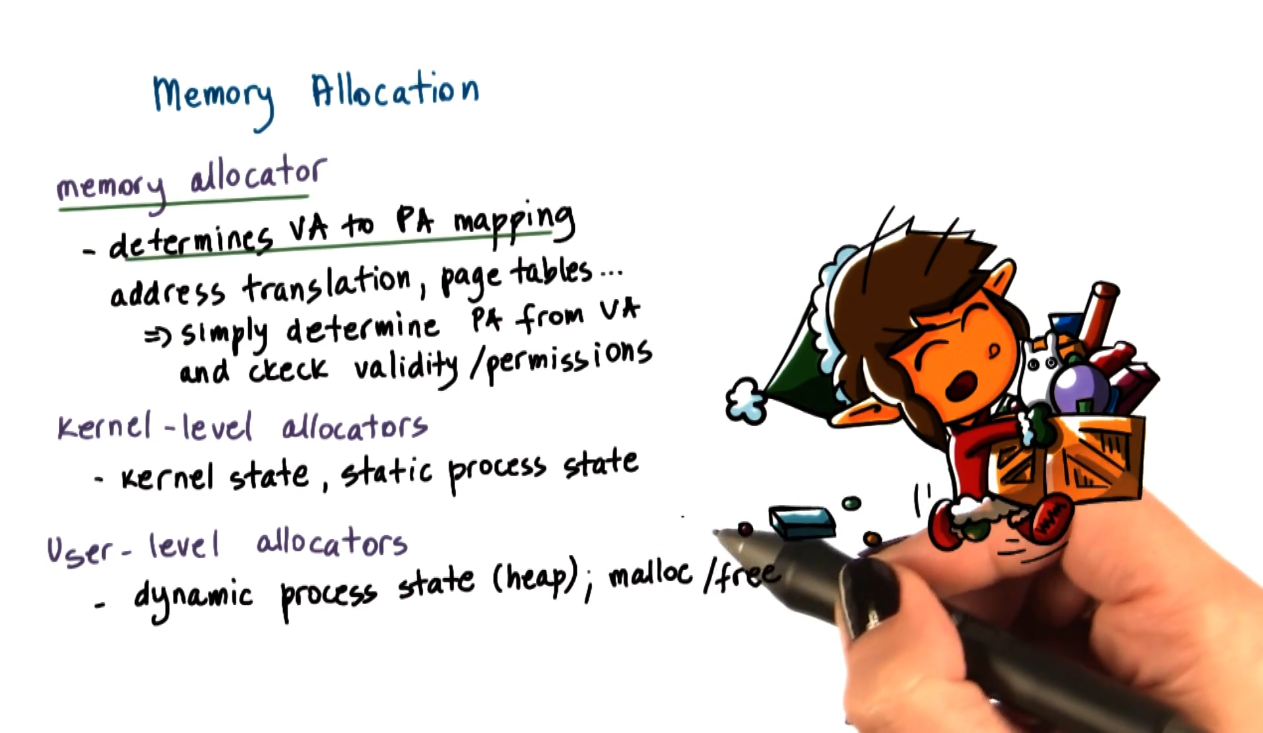 Memory Allocation
memory allocator
- determines VA to PA mapping
address translation, page tables...
⇒ simply determine PA from VA
and ckeck validity/permissions
Kernel-level allocators
- kernel state, static process state
User-level allocators
- dynamic process state (heap); malloc/free